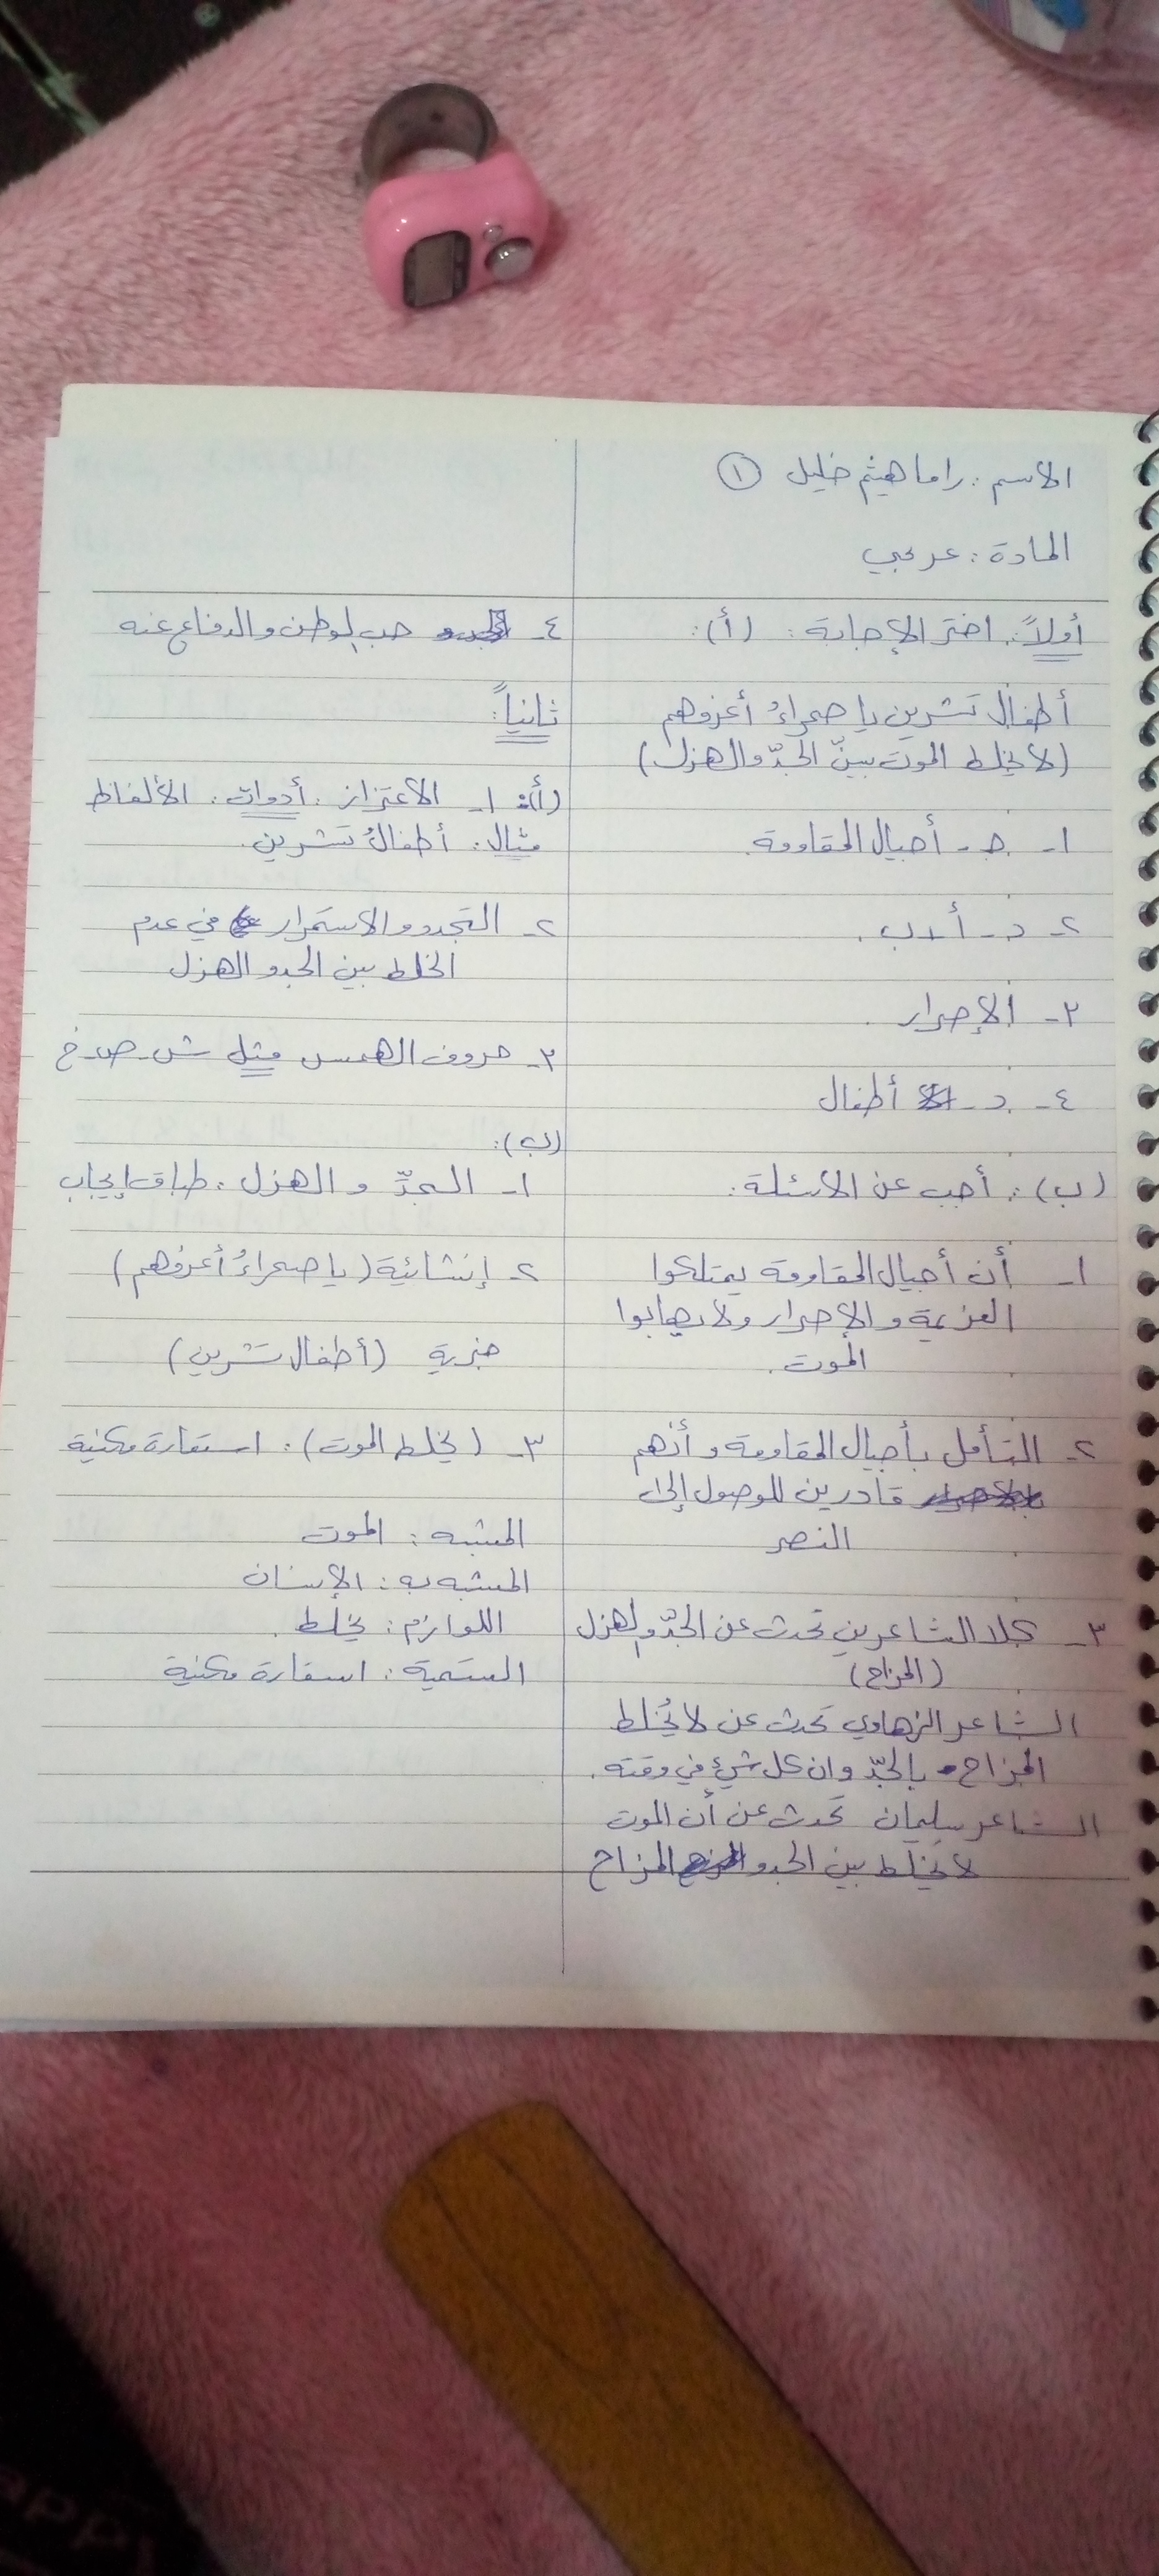 الاسم: راما هيثم خليل ①
المادة: عربي
أولاً: اختر الإجابة: (أ):
أطفالُ تشرين يا صحراءُ أعرفهم
(لا يخلط الموت بين الجدّ والهزل)
١- جـ - أجيال المقاومة.
٢- د - أ + ب.
٣- الإصرار.
٤- د - أطفال
(ب): أجب عن الأسئلة:
١- أن أجيال المقاومة يمتلكوا
العزيمة والإصرار ولا يهابوا
الموت.
٢- التأمل بأجيال المقاومة وأنهم
قادرين للوصول إلى
النصر
٣- كلا الشاعرين تحدث عن الجدّ والهزل
(المزاح)
الشاعر الزهاوي تحدث عن لا تخلط
المزاح بالجدّ وان كل شيء في وقته.
الشاعر سليمان تحدث عن أن الموت
لا يخلط بين الجد و المزاح
٤- حب الوطن والدفاع عنه
ثانياً:
(أ): ١- الاعتزاز: أدوات: الألفاظ
مثال: أطفالُ تشرين.
٢- التجدد والاستمرار في عدم
الخلط بين الجد والهزل
٣- حروف الهمس مثل ش - ص - خ
(ب):
١- الجدّ و الهزل: طباق إيجاب
٢- إنشائية (يا صحراءُ أعرفهم)
خبرية (أطفال تشرين)
٣- (يخلط الموت): استعارة مكنية
المشبه: الموت
المشبه به: الإنسان
اللوازم: يخلط.
التسمية: استعارة مكنية